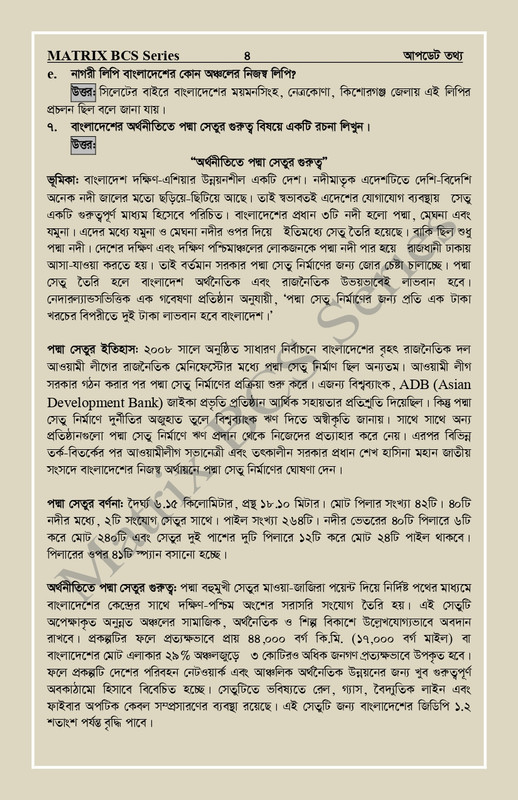 MATRIX BCS Series ৪ আপডেট তথ্য
e. নাগরী লিপি বাংলাদেশের কোন অঞ্চলের নিজস্ব লিপি?
উত্তর: সিলেটের বাইরে বাংলাদেশের ময়মনসিংহ, নেত্রকোণা, কিশোরগঞ্জ জেলায় এই লিপির
প্রচলন ছিল বলে জানা যায়।
৭. বাংলাদেশের অর্থনীতিতে পদ্মা সেতুর গুরুত্ব বিষয়ে একটি রচনা লিখুন।
উত্তর:
“অর্থনীতিতে পদ্মা সেতুর গুরুত্ব”
ভূমিকা: বাংলাদেশ দক্ষিণ-এশিয়ার উন্নয়নশীল একটি দেশ। নদীমাতৃক এদেশটিতে দেশি-বিদেশি
অনেক নদী জালের মতো ছড়িয়ে-ছিটিয়ে আছে। তাই স্বভাবতই এদেশের যোগাযোগ ব্যবস্থায় সেতু
একটি গুরুত্বপূর্ণ মাধ্যম হিসেবে পরিচিত। বাংলাদেশের প্রধান ৩টি নদী হলো পদ্মা, মেঘনা এবং
যমুনা। এদের মধ্যে যমুনা ও মেঘনা নদীর ওপর দিয়ে ইতিমধ্যে সেতু তৈরি হয়েছে। বাকি ছিল শুধু
পদ্মা নদী। দেশের দক্ষিণ এবং দক্ষিণ পশ্চিমাঞ্চলের লোকজনকে পদ্মা নদী পার হয়ে রাজধানী ঢাকায়
আসা-যাওয়া করতে হয়। তাই বর্তমান সরকার পদ্মা সেতু নির্মাণের জন্য জোর চেষ্টা চালাচ্ছে। পদ্মা
সেতু তৈরি হলে বাংলাদেশ অর্থনৈতিক এবং রাজনৈতিক উভয়ভাবেই লাভবান হবে।
নেদারল্যান্ডসভিত্তিক এক গবেষণা প্রতিষ্ঠান অনুযায়ী, ‘পদ্মা সেতু নির্মাণের জন্য প্রতি এক টাকা
খরচের বিপরীতে দুই টাকা লাভবান হবে বাংলাদেশ।’
পদ্মা সেতুর ইতিহাস: ২০০৮ সালে অনুষ্ঠিত সাধারণ নির্বাচনে বাংলাদেশের বৃহৎ রাজনৈতিক দল
আওয়ামী লীগের রাজনৈতিক মেনিফেস্টোর মধ্যে পদ্মা সেতু নির্মাণ ছিল অন্যতম। আওয়ামী লীগ
সরকার গঠন করার পর পদ্মা সেতু নির্মাণের প্রক্রিয়া শুরু করে। এজন্য বিশ্বব্যাংক, ADB (Asian
Development Bank) জাইকা প্রভৃতি প্রতিষ্ঠান আর্থিক সহায়তার প্রতিশ্রুতি দিয়েছিল। কিন্তু পদ্মা
সেতু নির্মাণে দুর্নীতির অজুহাত তুলে বিশ্বব্যাংক ঋণ দিতে অস্বীকৃতি জানায়। সাথে সাথে অন্য
প্রতিষ্ঠানগুলো পদ্মা সেতু নির্মাণে ঋণ প্রদান থেকে নিজেদের প্রত্যাহার করে নেয়। এরপর বিভিন্ন
তর্ক-বিতর্কের পর আওয়ামীলীগ সভানেত্রী এবং তৎকালীন সরকার প্রধান শেখ হাসিনা মহান জাতীয়
সংসদে বাংলাদেশের নিজস্ব অর্থায়নে পদ্মা সেতু নির্মাণের ঘোষণা দেন।
পদ্মা সেতুর বর্ণনা: দৈর্ঘ্য ৬.১৫ কিলোমিটার, প্রস্থ ১৮.১০ মিটার। মোট পিলার সংখ্যা ৪২টি। ৪০টি
নদীর মধ্যে, ২টি সংযোগ সেতুর সাথে। পাইল সংখ্যা ২৬৪টি। নদীর ভেতরের ৪০টি পিলারে ৬টি
করে মোট ২৪০টি এবং সেতুর দুই পাশের দুটি পিলারে ১২টি করে মোট ২৪টি পাইল থাকবে।
পিলারের ওপর ৪১টি স্প্যান বসানো হচ্ছে।
অর্থনীতিতে পদ্মা সেতুর গুরুত্ব: পদ্মা বহুমুখী সেতুর মাওয়া-জাজিরা পয়েন্ট দিয়ে নির্দিষ্ট পথের মাধ্যমে
বাংলাদেশের কেন্দ্রের সাথে দক্ষিণ-পশ্চিম অংশের সরাসরি সংযোগ তৈরি হয়। এই সেতুটি
অপেক্ষাকৃত অনুন্নত অঞ্চলের সামাজিক, অর্থনৈতিক ও শিল্প বিকাশে উল্লেখযোগ্যভাবে অবদান
রাখবে। প্রকল্পটির ফলে প্রত্যক্ষভাবে প্রায় ৪৪,০০০ বর্গ কি.মি. (১৭,০০০ বর্গ মাইল) বা
বাংলাদেশের মোট এলাকার ২৯% অঞ্চলজুড়ে ৩ কোটিরও অধিক জনগণ প্রত্যক্ষভাবে উপকৃত হবে।
ফলে প্রকল্পটি দেশের পরিবহন নেটওয়ার্ক এবং আঞ্চলিক অর্থনৈতিক উন্নয়নের জন্য খুব গুরুত্বপূর্ণ
অবকাঠামো হিসাবে বিবেচিত হচ্ছে। সেতুটিতে ভবিষ্যতে রেল, গ্যাস, বৈদ্যুতিক লাইন এবং
ফাইবার অপটিক কেবল সম্প্রসারণের ব্যবস্থা রয়েছে। এই সেতুটি জন্য বাংলাদেশের জিডিপি ১.২
শতাংশ পর্যন্ত বৃদ্ধি পাবে।
Matrix BCS Series